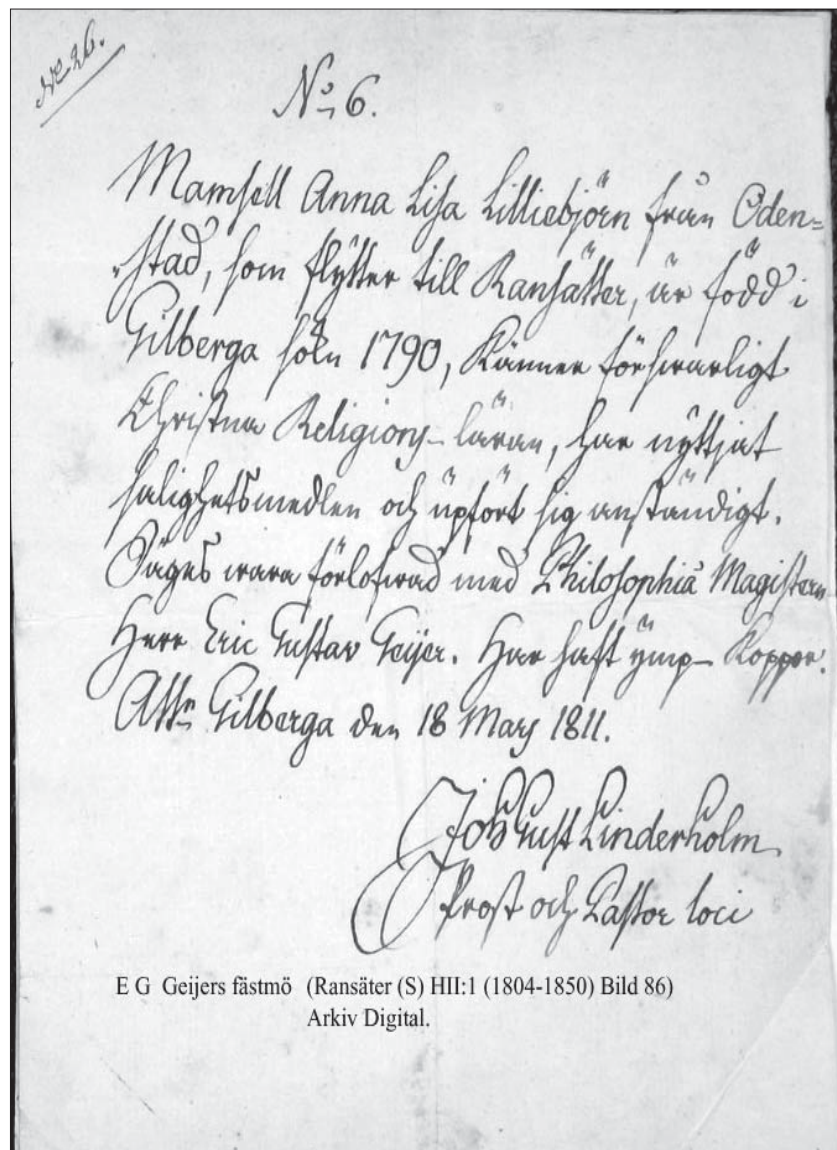 No 26.
No 6.
Mamsell Anna Lisa Lilliebjörn från Oden=
=stad, som flÿtter till Ransätter, är född i
Gilberga Sokn 1790, Känner försvarligt
Christna Religions-läran, har nÿttjat
salighetsmedlen och upfört sig anständigt.
Säges wara förlofwad med Philosophiæ Magistern
Herr Eric Gustav Geijer. Har haft ÿmp-Koppor.
Att Gilberga den 18 Mars 1811.
Joh Gust Linderholm
Prost och Pastor loci
E G Geijers fästmö (Ransäter (S) HII:1 (1804-1850) Bild 86)
Arkiv Digital.